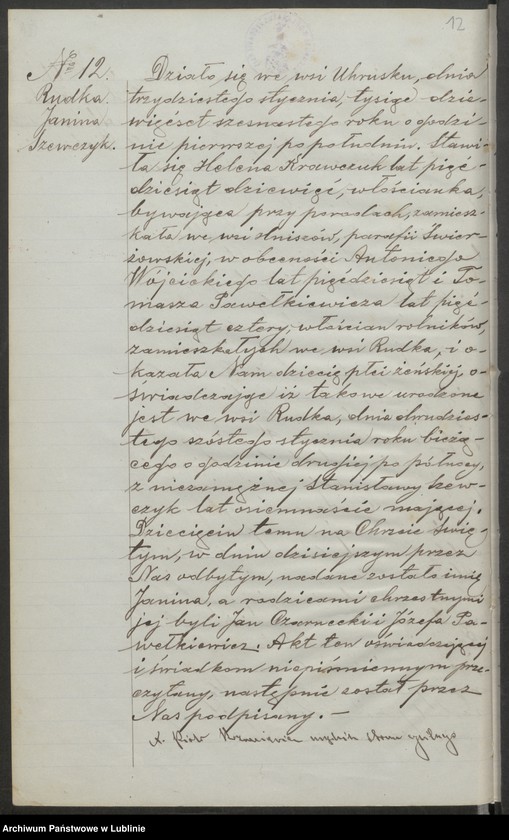 12
№ 12.
Rudka.
Janina
Szewczyk.
Działo się we wsi Uhrusku, dnia
trzydziestego stycznia, tysiąc dzie-
więćset szesnastego roku o godzi-
nie pierwszej po południu. Stawi-
ła się Helena Krawczuk lat pięć-
dziesiąt dziewięć, włościanka,
bywająca przy porodach, zamiesz-
kała we wsi Hniszów, parafii Świer-
żowskiej, w obecności Antoniego
Wójcickiego lat pięćdziesiąt i To-
masza Pawełkiewicza lat pięć-
dziesiąt cztery, włościan rolników,
zamieszkałych we wsi Rudka, i o-
kazała Nam dziecię płci żeńskiej, o-
świadczając iż takowe urodzone
jest we wsi Rudka, dnia dwudzies-
tego szóstego stycznia roku bieżą-
cego o godzinie drugiej po północy,
z niezamężnej Stanisławy Szew-
czyk lat osiemnaście mającej.
Dziecięciu temu na Chrzcie Świę-
tym, w dniu dzisiejszym przez
Nas odbytym, nadane zostało imię
Janina, a rodzicami chrzestnymi
jej byli Jan Czarnecki i Józefa Pa-
wełkiewicz. Akt ten oświadczającej
i świadkom niepiśmiennym prze-
czytany, następnie został przez
Nas podpisany. –
X. Piotr
Archiwum Państwowe w Lublinie